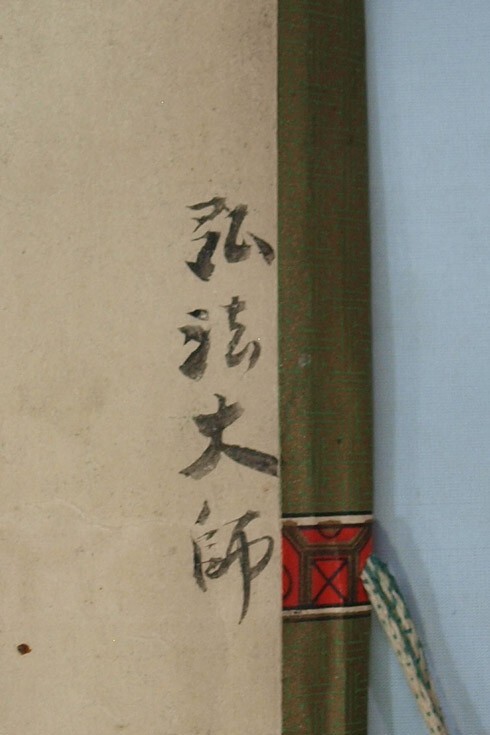 弘法大師